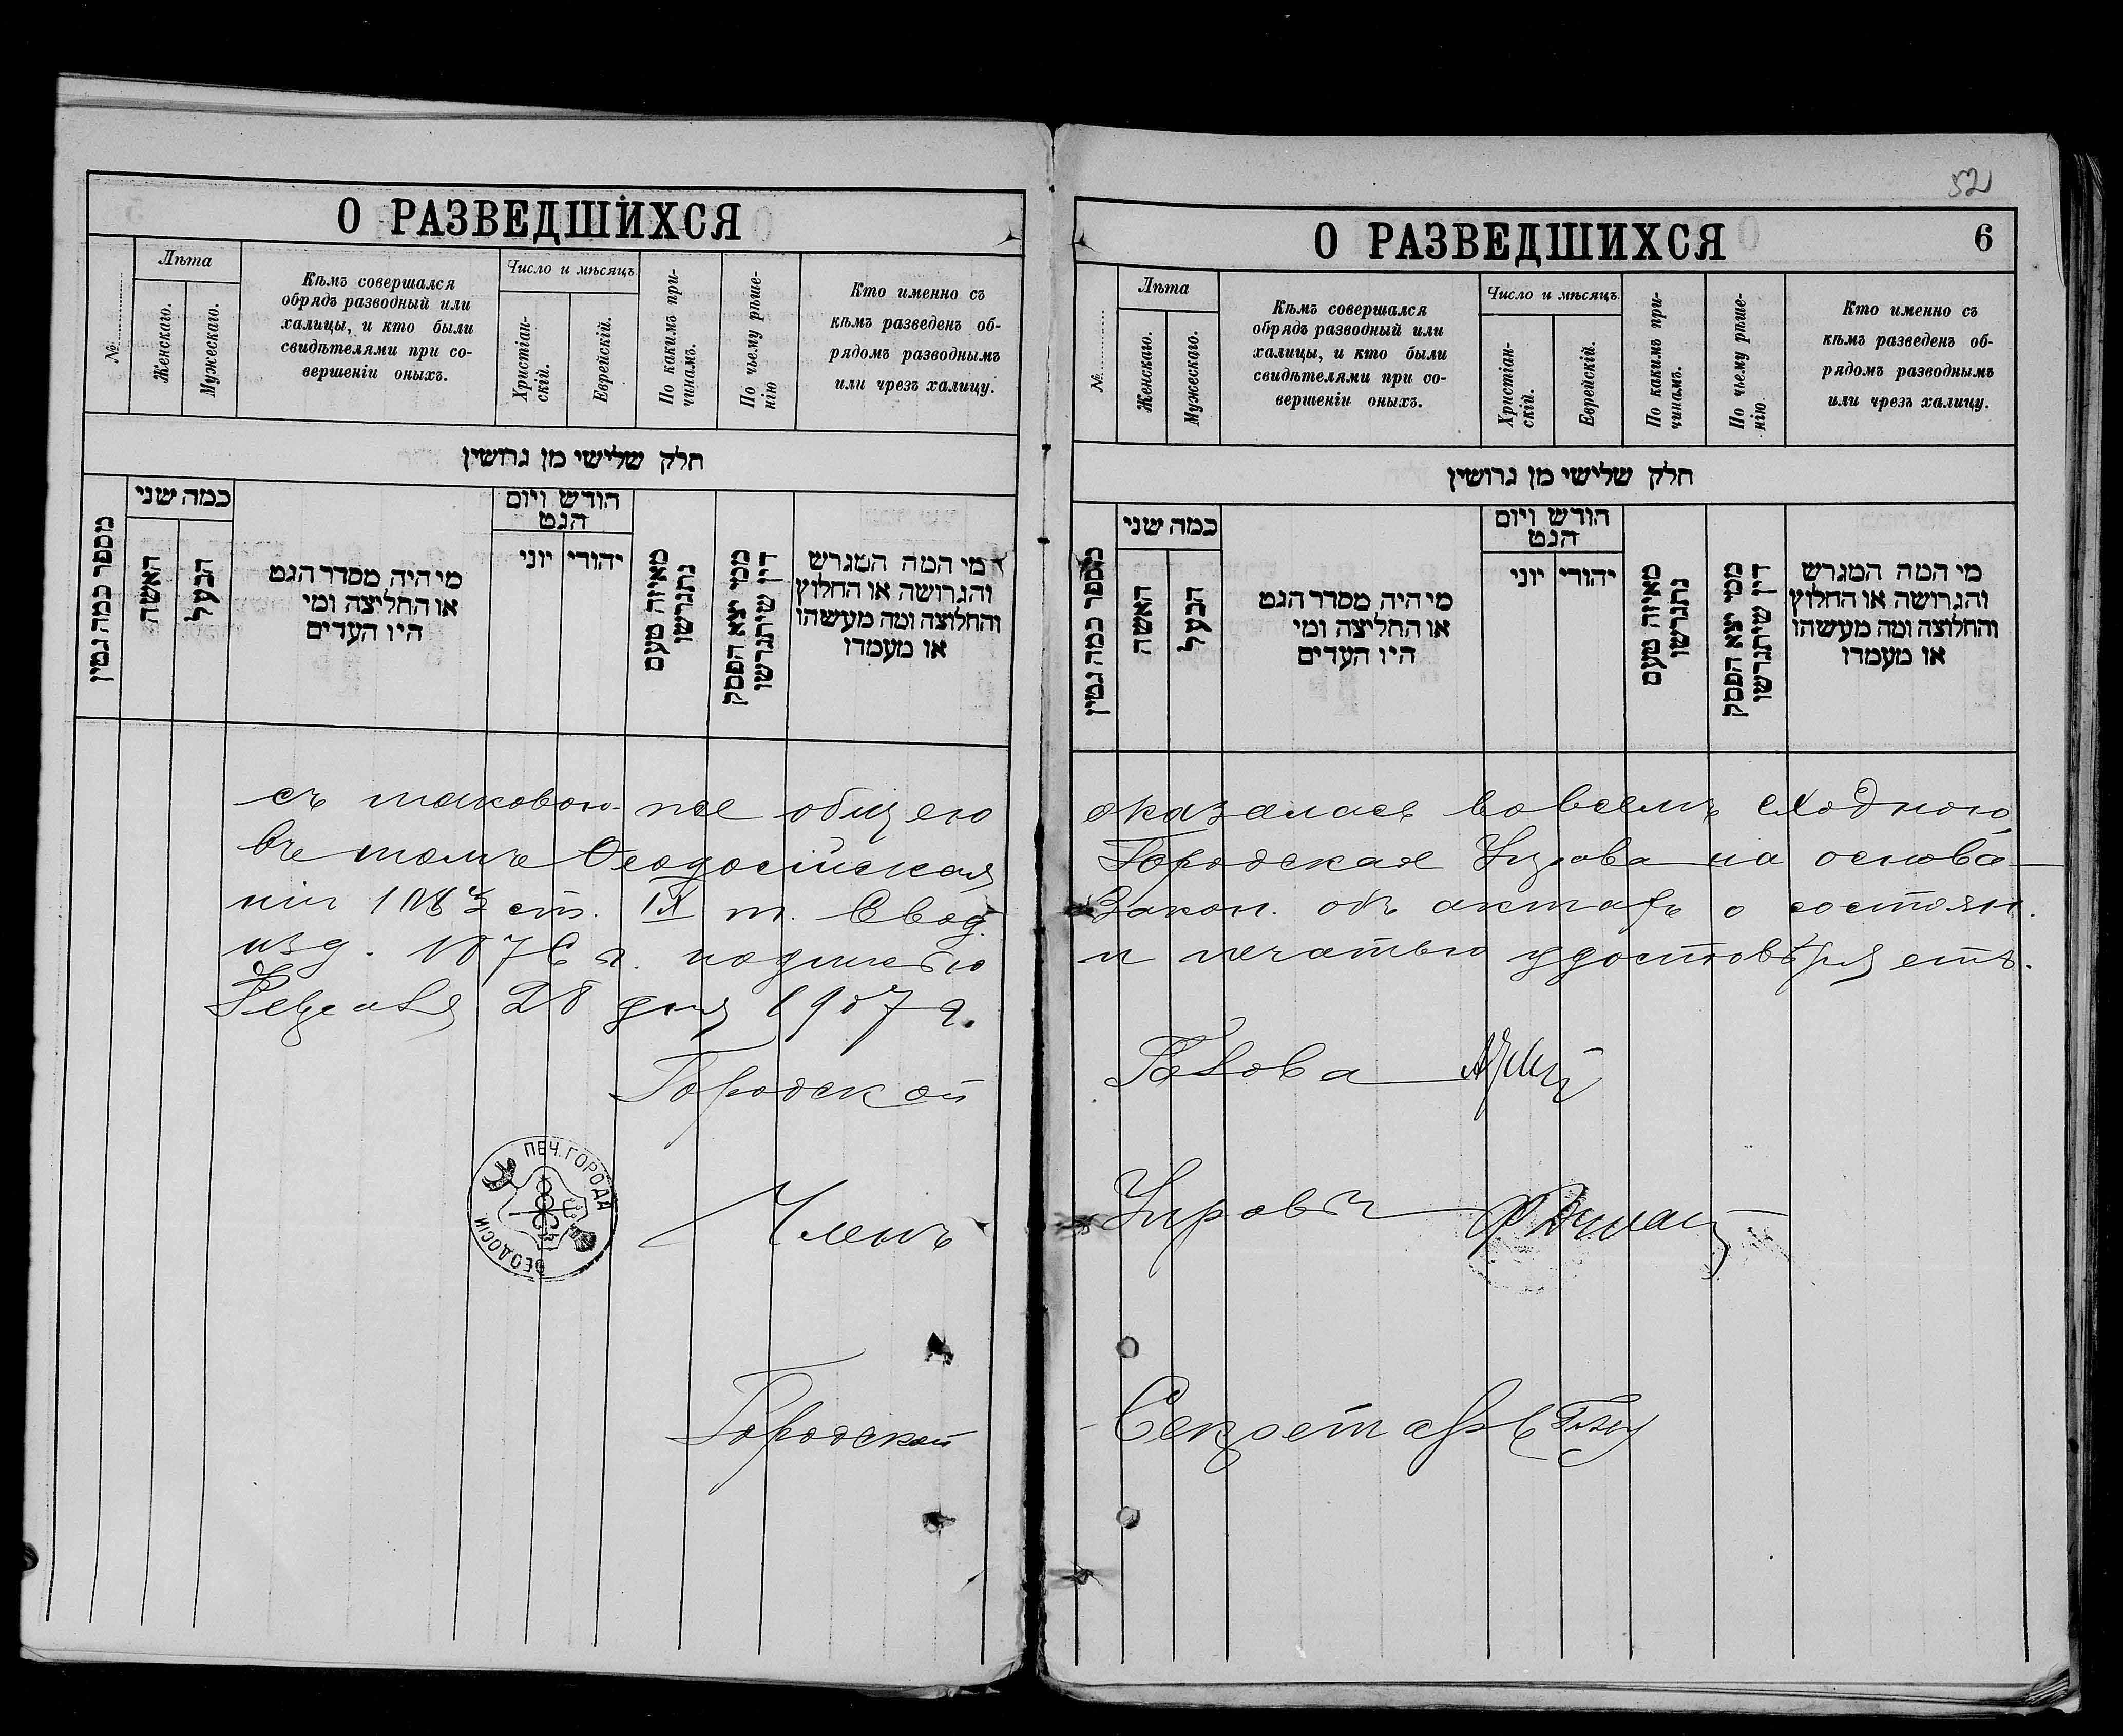 О РАЗВЕДШИХСЯ
№
Лѣта
Женскаго.
Мужескаго.
Кѣмъ совершался
обрядъ разводный или
халицы, и кто были
свидѣтелями при со-
вершеніи оныхъ.
Число и мѣсяцъ
Христіан-
скій.
Еврейскій.
По какимъ при-
чинамъ.
По чьему рѣше-
нію
Кто именно съ
кѣмъ разведенъ об-
рядомъ разводнымъ
или чрезъ халицу.
חלק שלישי מן גרושין
מספר כמה גטין
כמה שני
האשה
הבעל
מי היה מסדר הגט
או החליצה ומי
היו העדים
הודש ויום
הגט
יוני
יהודי
מאיזה טעם
נתגרשו
ממי יצא הפסק
דין שיתגרשו
מי המה המגרש
והגרושה או החלוץ
והחלוצה ומה מעשהו
או מעמדו
съ таковою-же общею
въ томъ Ѳеодосійская
ніи ст. IX т. Свод.
изд. 1876 г. подписью
28 дня 1907 г.
Городской
ПЕЧ. ГОРОДА
ѲЕОДОСІИ.
Членъ
Городской
52
О РАЗВЕДШИХСЯ
6
№
Лѣта
Женскаго.
Мужескаго.
Кѣмъ совершался
обрядъ разводный или
халицы, и кто были
свидѣтелями при со-
вершеніи оныхъ.
Число и мѣсяцъ.
Христіан-
скій.
Еврейскій.
По какимъ при-
чинамъ.
По чьему рѣше-
нію
Кто именно съ
кѣмъ разведенъ об-
рядомъ разводнымъ
или чрезъ халицу.
חלק שלישי מן גרושין
מספר כמה גטין
כמה שני
האשה
הבעל
מי היה מסדר הגט
או החליצה ומי
היו העדים
הודש ויום
הגט
יוני
יהודי
מאיזה טעם
נתגרשו
ממי יצא הפסק
דין שיתגרשו
מי המה המגרש
והגרושה או החלוץ
והחלוצה ומה מעשהו
או מעמדו
оказалась во всемъ сходною,
Городская Управа на основа-
Закон. объ актахъ о состоян.
и печатью удостовѣряетъ.
Голова
Управы
Секретарь